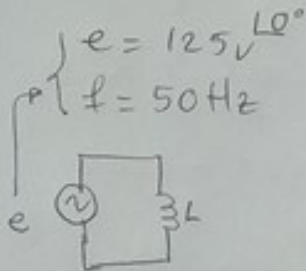 e = 125 V ∠0°
f = 50 Hz
e
L